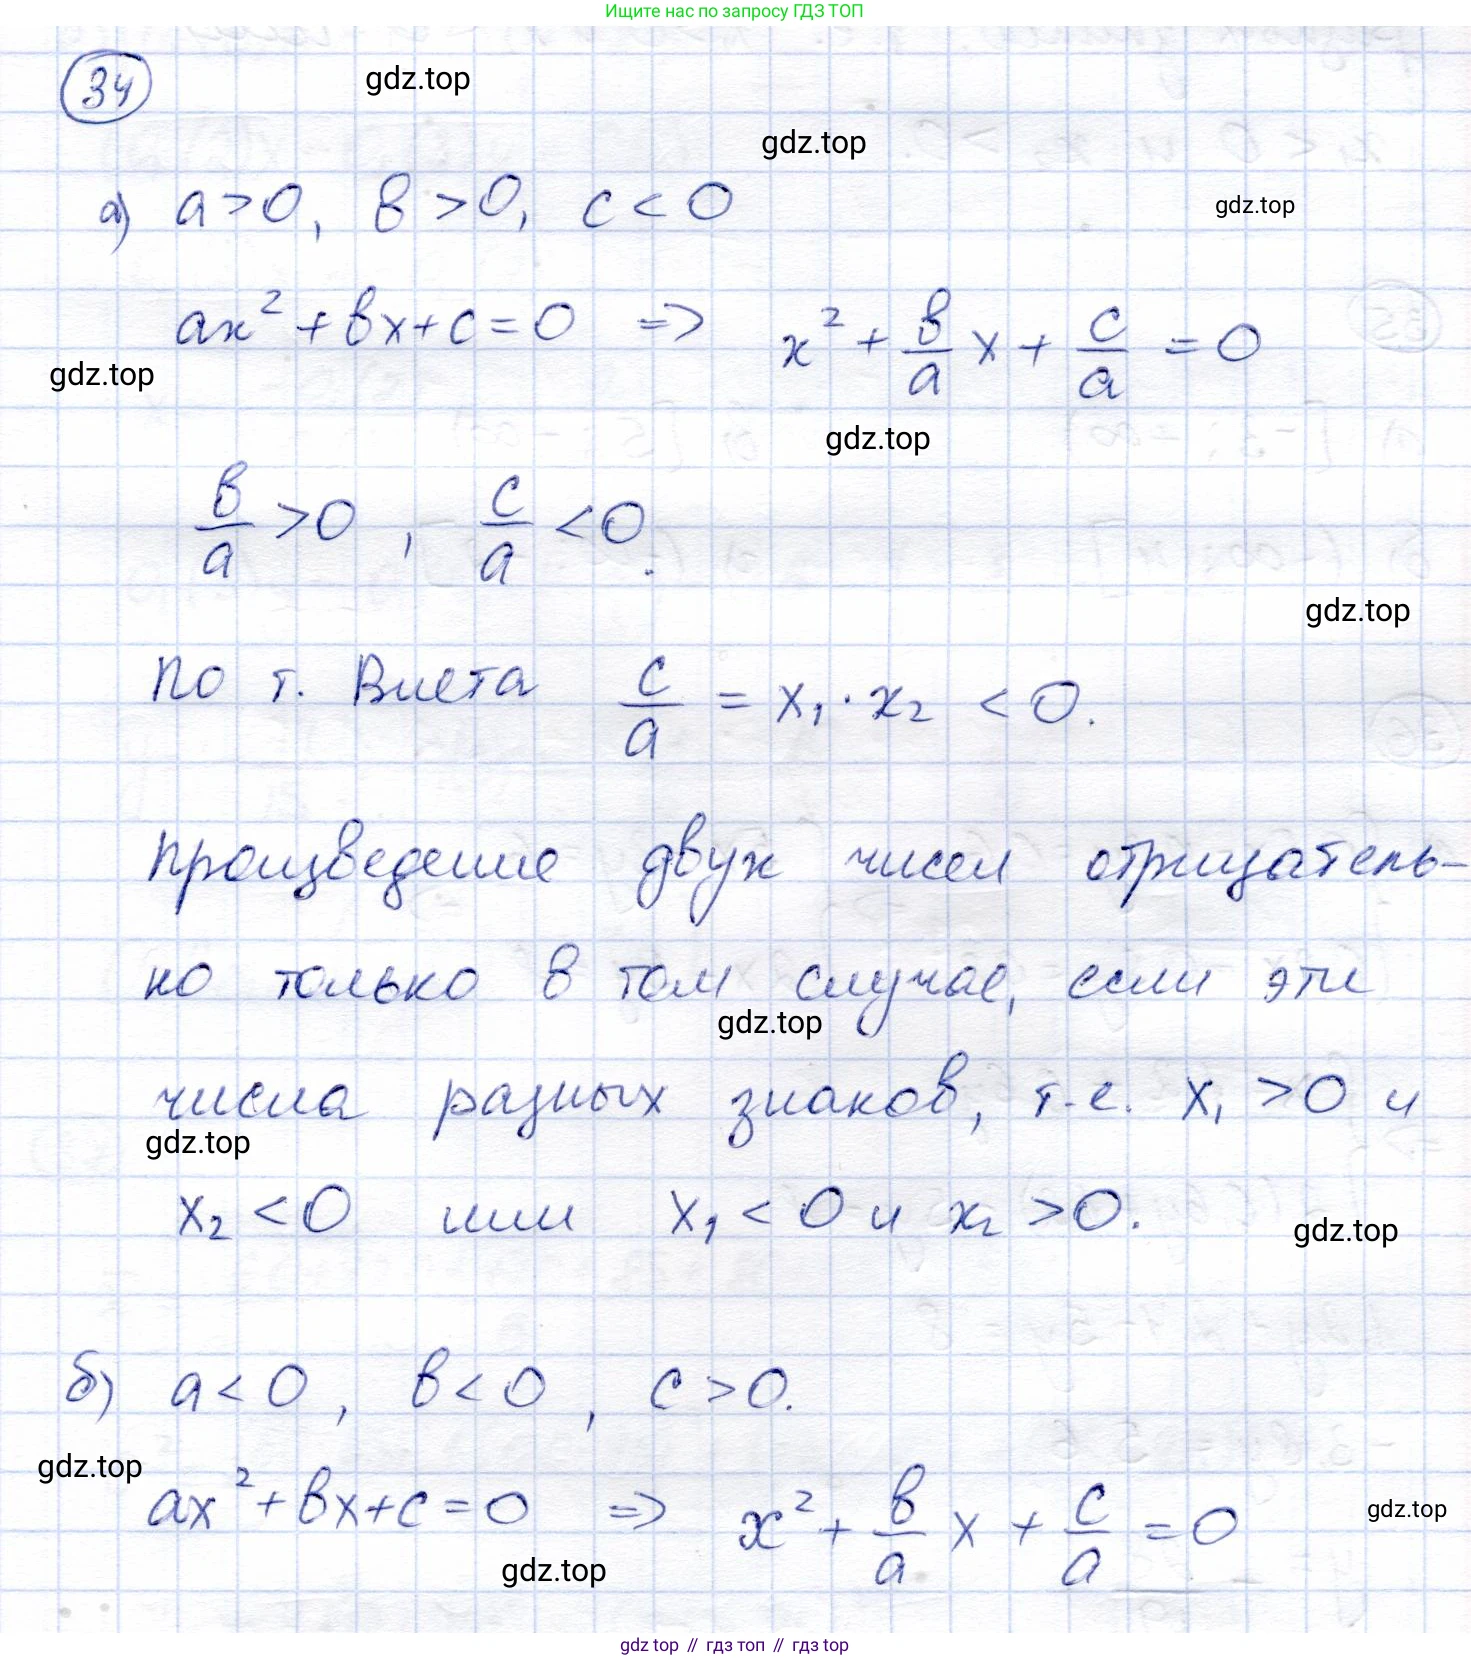 Ищите нас по запросу ГДЗ ТОП
34
gdz.top
gdz.top
а) a>0, в>0, c<0
gdz.top
ax²+вx+c=0 => x²+в/a x+c/a=0
gdz.top
gdz.top
в/a>0, c/a<0.
gdz.top
По т. Виета c/a=x₁·x₂<0.
Произведение двух чисел отрицатель-
но только в том случае, если эти
gdz.top
числа разных знаков, т.е. x₁>0 и
gdz.top
x₂<0 или x₁<0 и x₂>0.
gdz.top
б) a<0, в<0, c>0.
gdz.top
ax²+вx+c=0 => x²+в/a x+c/a=0
gdz.top
gdz.top
gdz top // гдз топ // гдз top